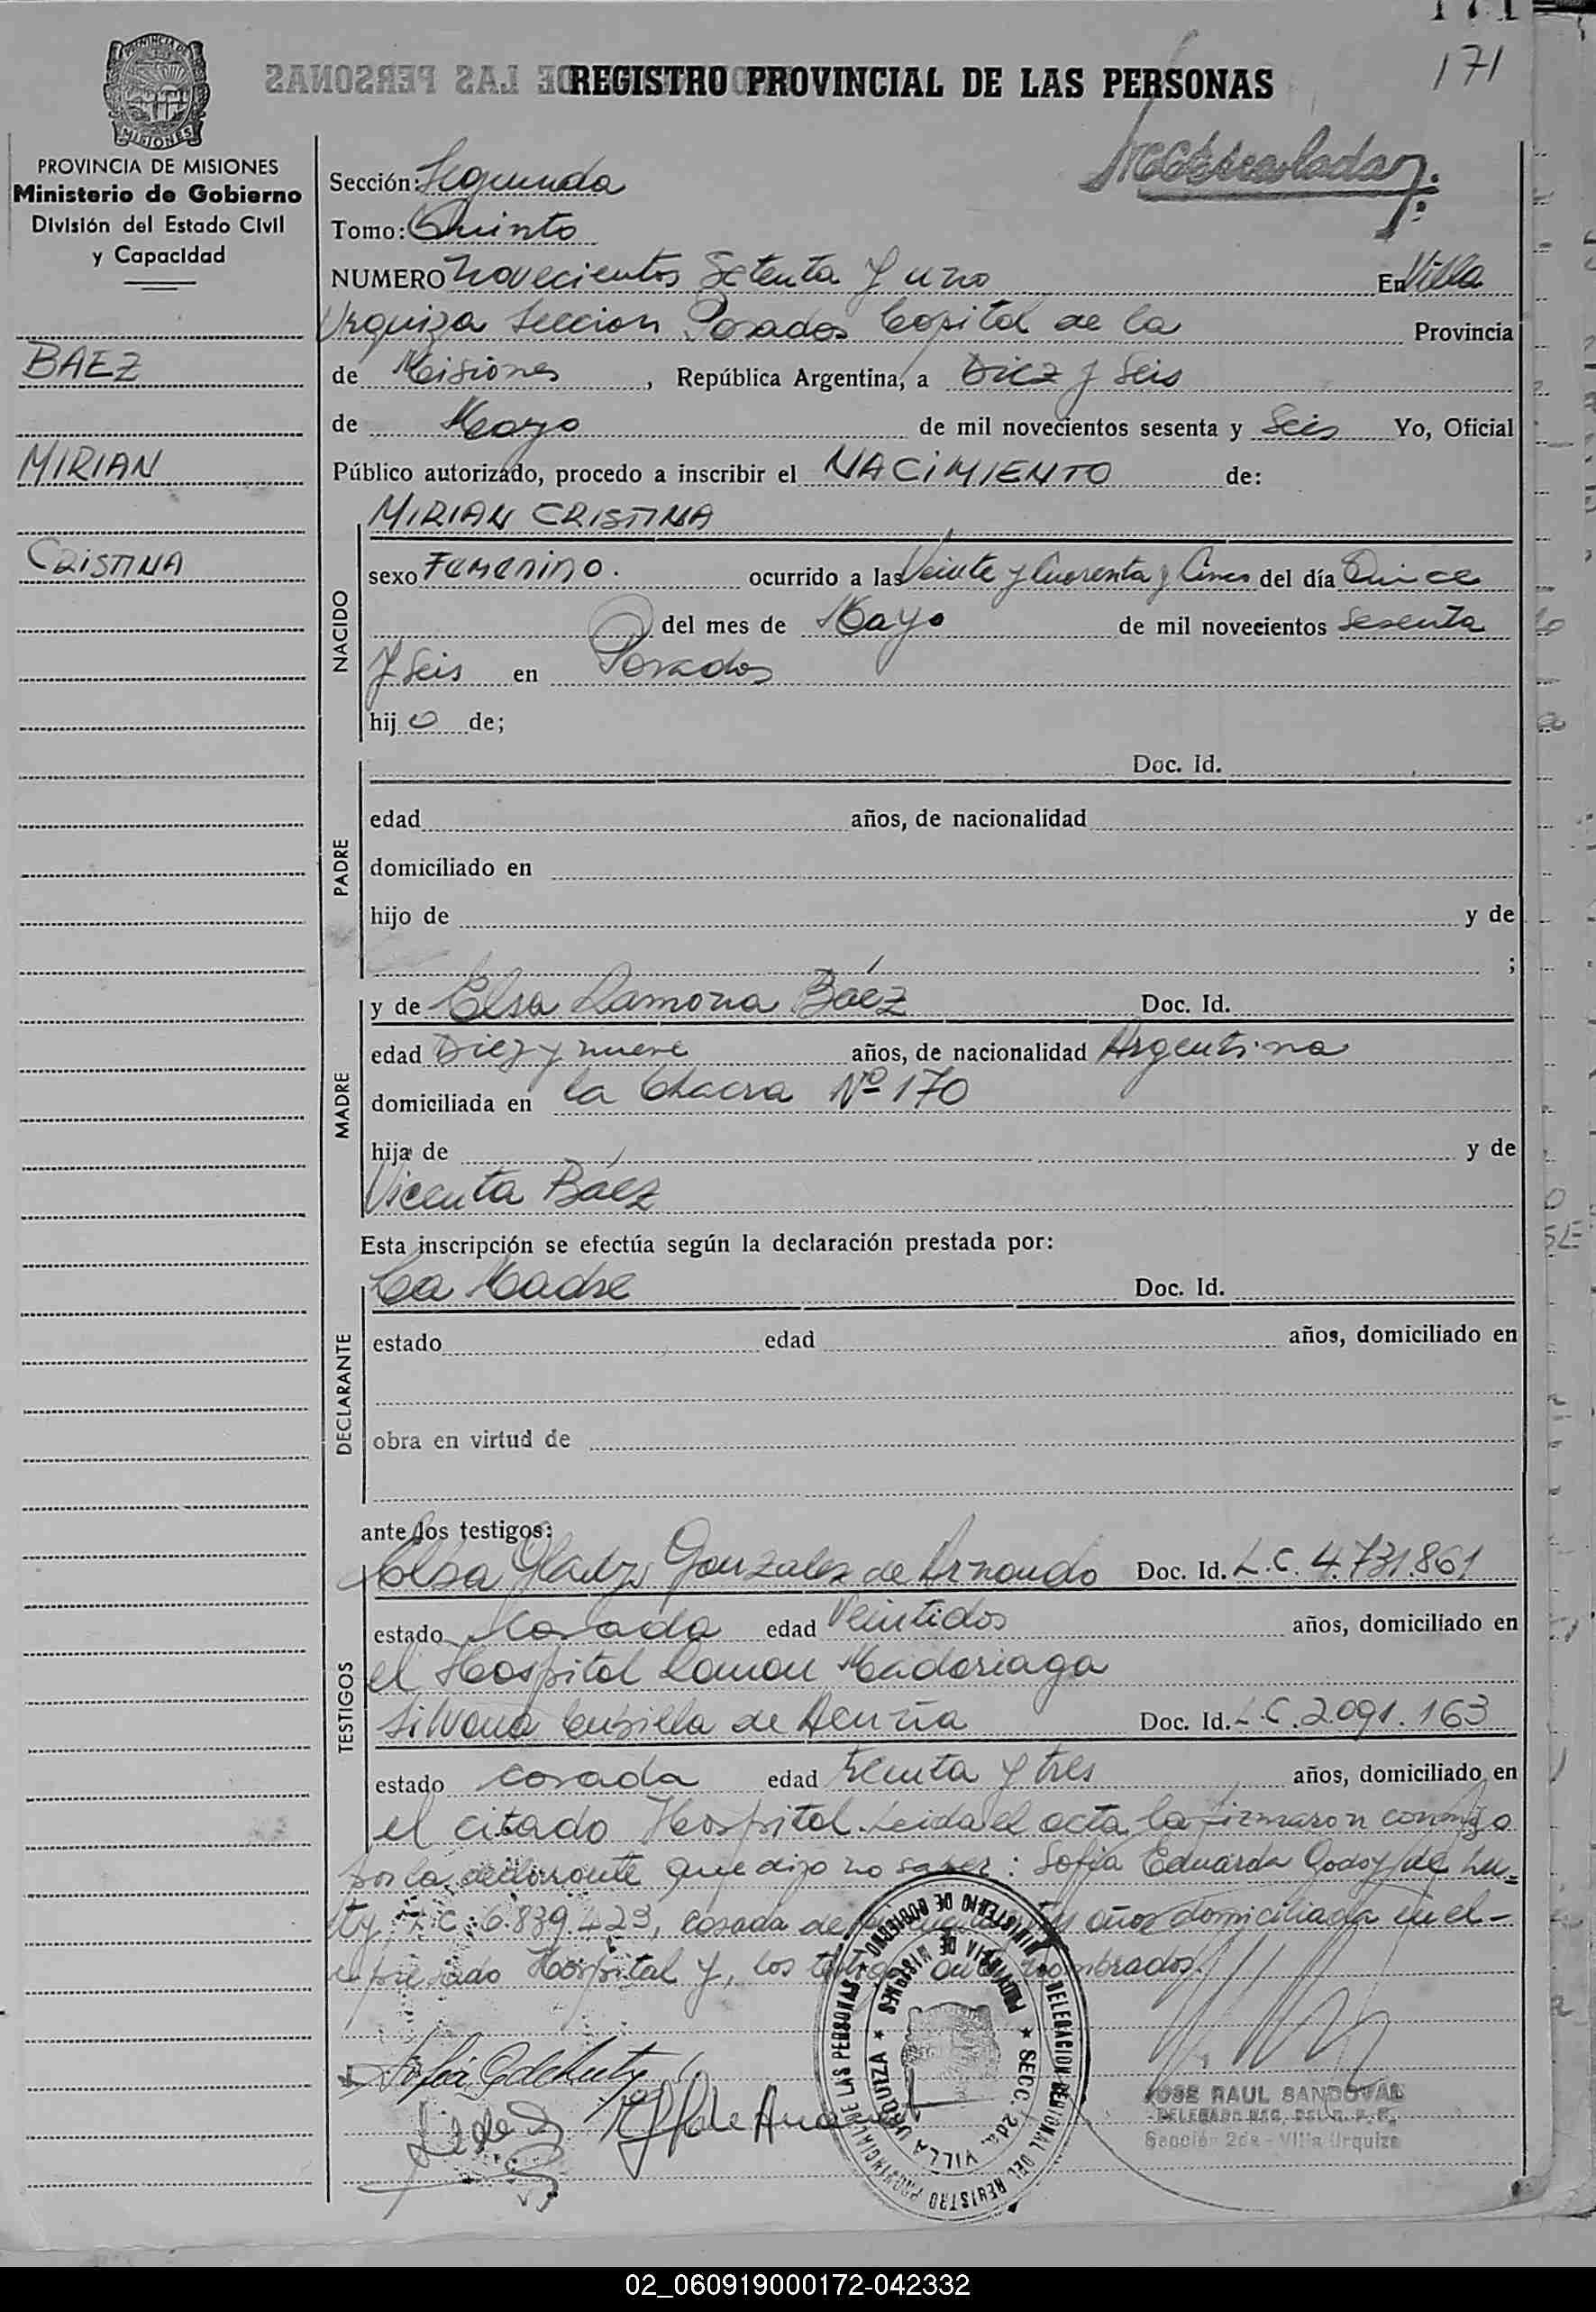 171
171
REGISTRO PROVINCIAL DE LAS PERSONAS
PROVINCIA DE MISIONES
Ministerio de Gobierno
División del Estado Civil
y Capacidad
BAEZ
MIRIAN
CRISTINA
Sección: Segunda
Tomo: Quinto
NUMERO Novecientos Setenta y uno En Villa
Urquiza Seccion Posadas Capital de la Provincia
de Misiones, República Argentina, a Diez y Seis
de Mayo de mil novecientos sesenta y Seis Yo, Oficial
Público autorizado, procedo a inscribir el NACIMIENTO de:
NACIDO
MIRIAN CRISTINA
sexo Femenino. ocurrido a las Veinte y Cuarenta y Cinco del día Quince
del mes de Mayo de mil novecientos Sesenta
y Seis en Posadas
hij a de;
PADRE
Doc. Id.
edad años, de nacionalidad
domiciliado en
hijo de y de
;
MADRE
y de Elsa Ramona Báez Doc. Id.
edad Diez y nueve años, de nacionalidad Argentina
domiciliada en la Chacra Nº 170
hija de y de
Vicenta Báez
Esta inscripción se efectúa según la declaración prestada por:
DECLARANTE
La Madre Doc. Id.
estado edad años, domiciliado en
obra en virtud de
ante los testigos:
TESTIGOS
Elsa Gladys Gonzalez de Doc. Id. L.C. 4.731.861
estado Casada edad Veintidos años, domiciliado en
el Hospital Ramon Madariaga
Silvana de Acuña Doc. Id. L.C. 2091.163
estado casada edad treinta y tres años, domiciliado en
el citado Hospital. Leida el acta la firmaron conmigo
por la declarante que dijo no saber: Sofia Eduarda Godoy de
L.C. 6.839.423, casada de años domiciliada en el
expresado Hospital y, los testigos nombrados.
REGISTRO PROVINCIAL DE LAS PERSONAS MINISTERIO DE GOBIERNO DELEGACION REGIONAL DEL
PROVINCIA DE MISIONES SECC. 2da. VILLA URQUIZA
JOSE RAUL SANDOVAL
DELEGADO REG. DEL R. P. P.
Sección 2da - Villa Urquiza
02_060919000172-042332